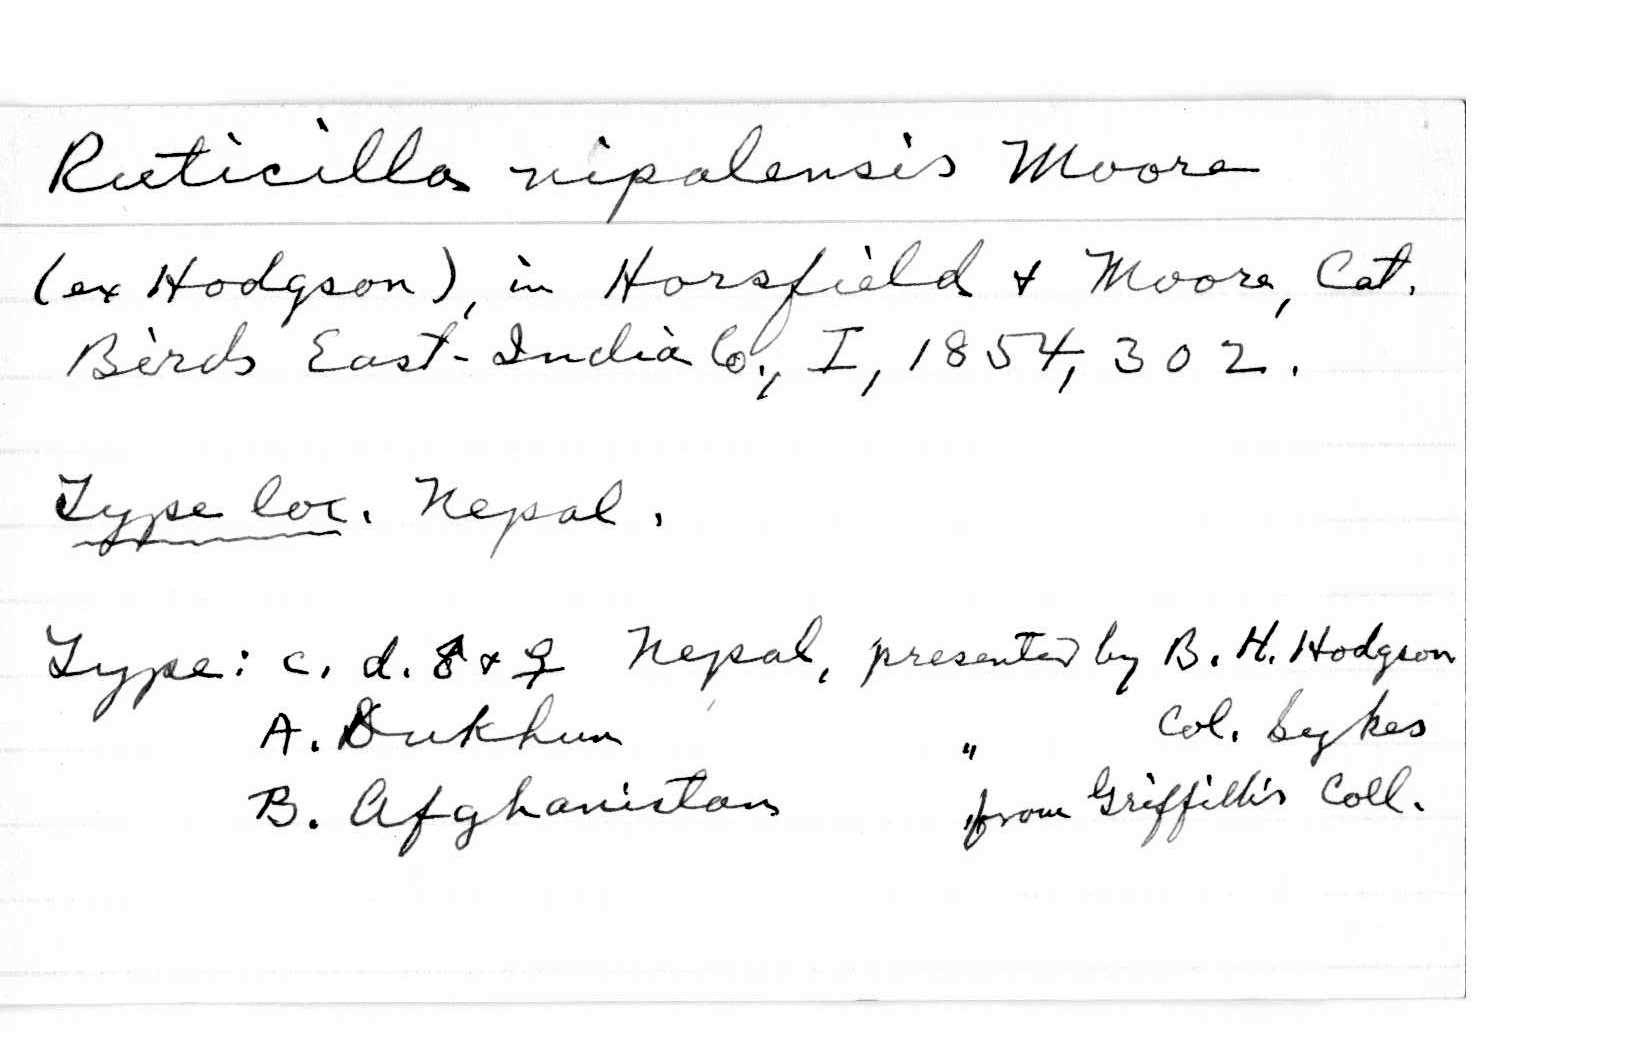 Ruticilla nipalensis Moore
(ex Hodgson), in Horsfield & Moore, Cat.
Birds East-India Co., I, 1854, 302.
Type loc. Nepal.
Type: c. d. ♂ & ♀ Nepal, presented by B. H. Hodgson
A. Dukhun " Col. Sykes
B. Afghanistan " from Griffith's Coll.